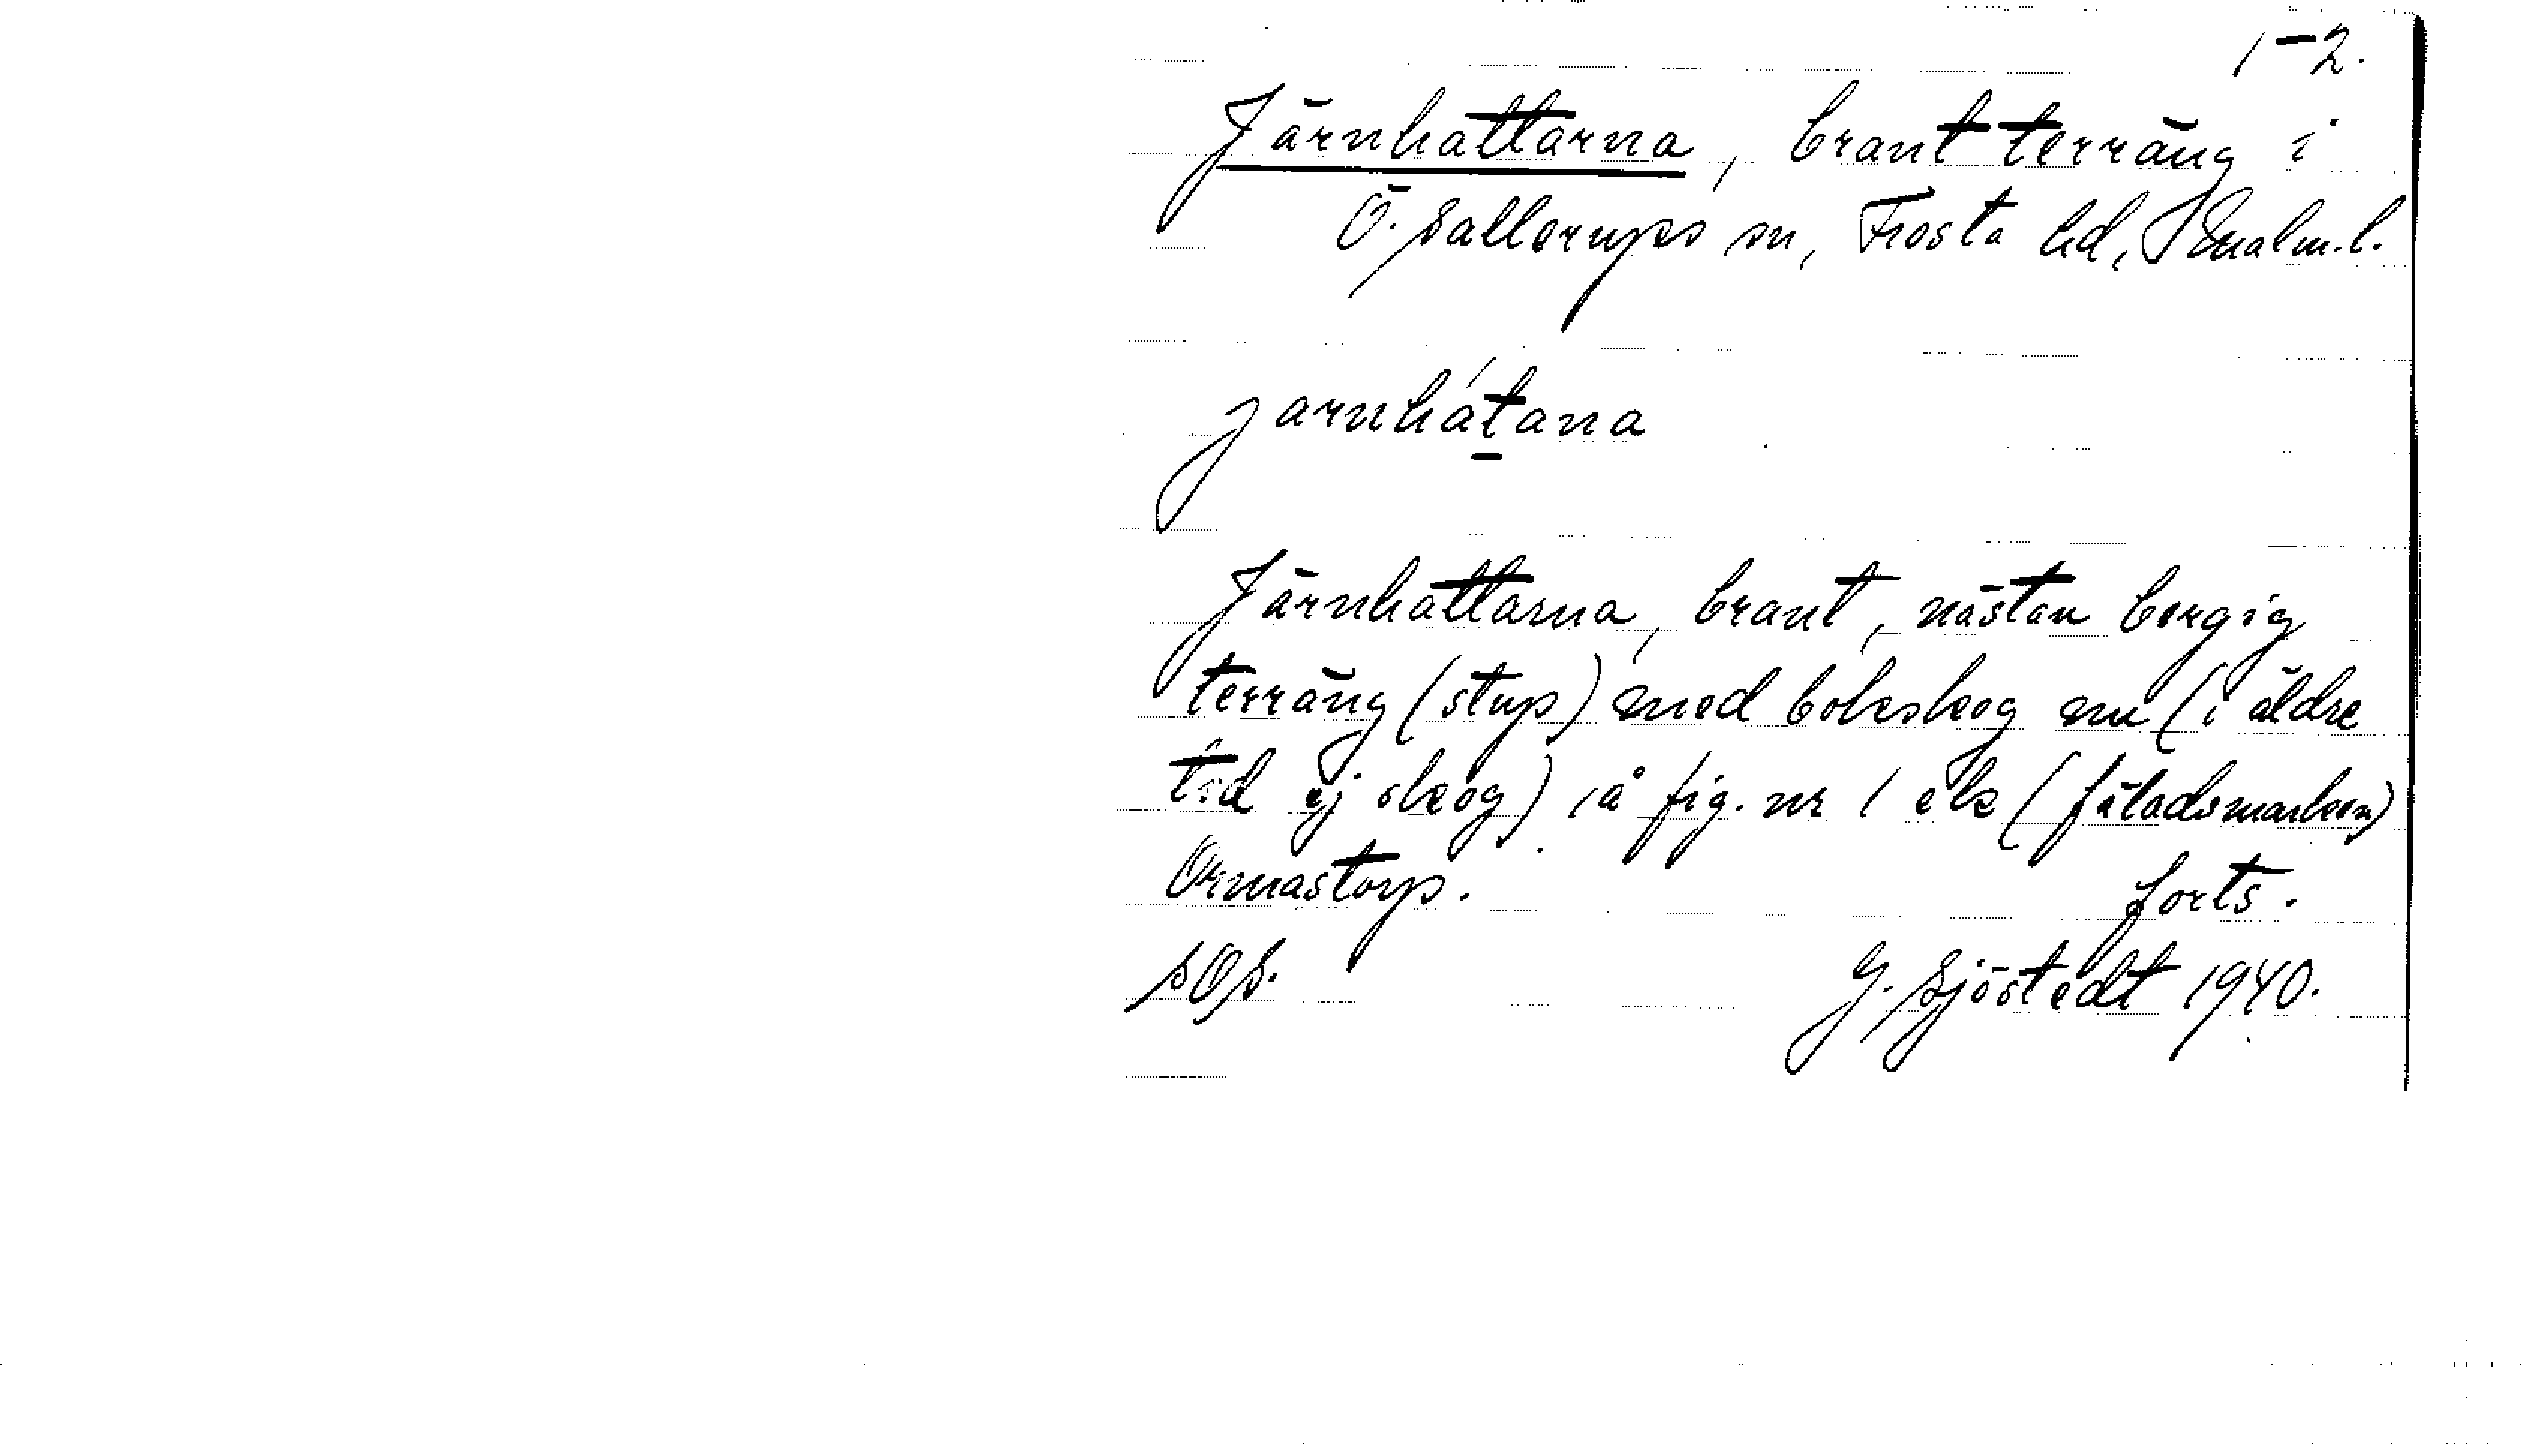 1-2.
Järnhattarna, brant terräng i
Ö. Sallerups sn, Frosta hd, Malm. l.
jarnhátana
Järnhattarna, brant, nästan bergig
terräng (stup) med bokskog nu (i äldre
tid ej skog) på fig. nr 1 ek (fäladsmarken)
Ormastorp.
forts.
SOS.
G. Sjöstedt 1940.